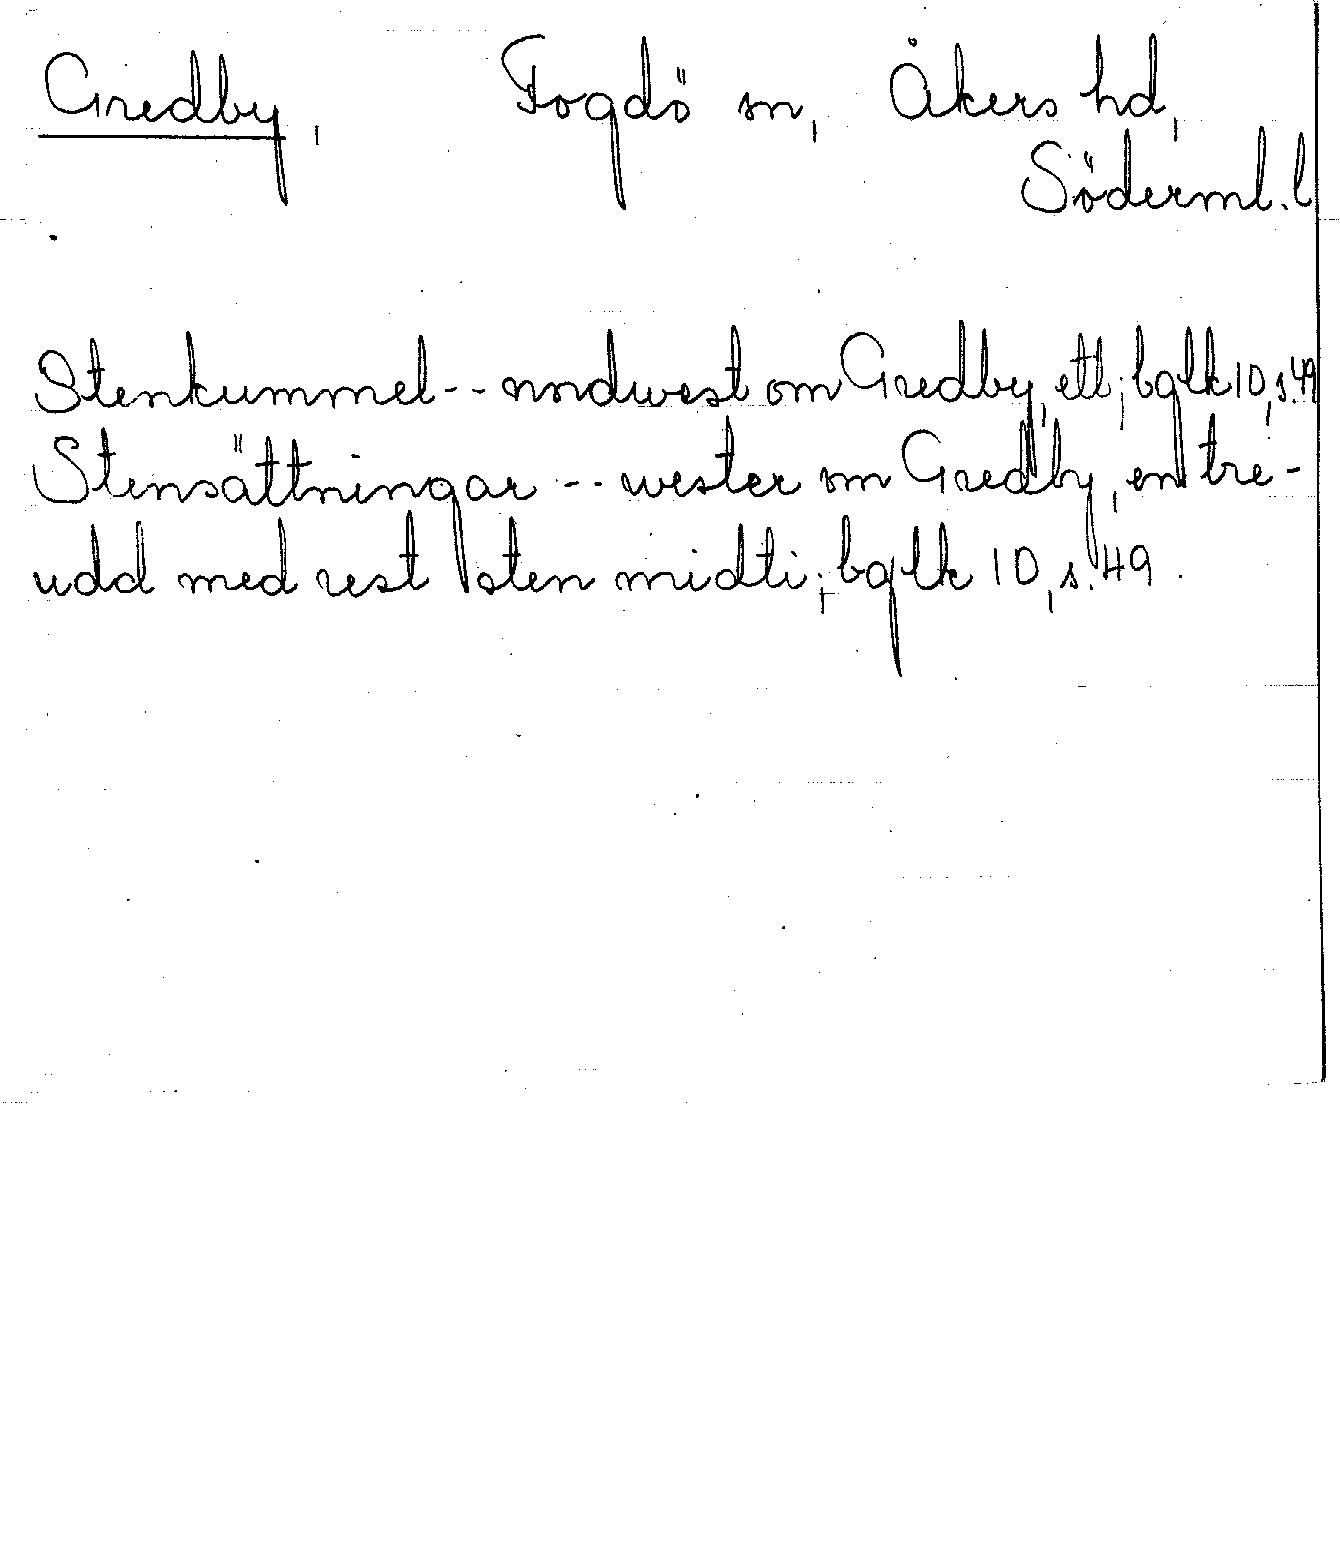 Gredby, Fogdö sn, Åkers hd,
Söderml. l
Stenkummel -- nordwest om Gredby, ett; bglk 10, s. 49
Stensättningar -- wester om Gredby, en tre-
udd med rest sten midti; bglk 10, s. 49.